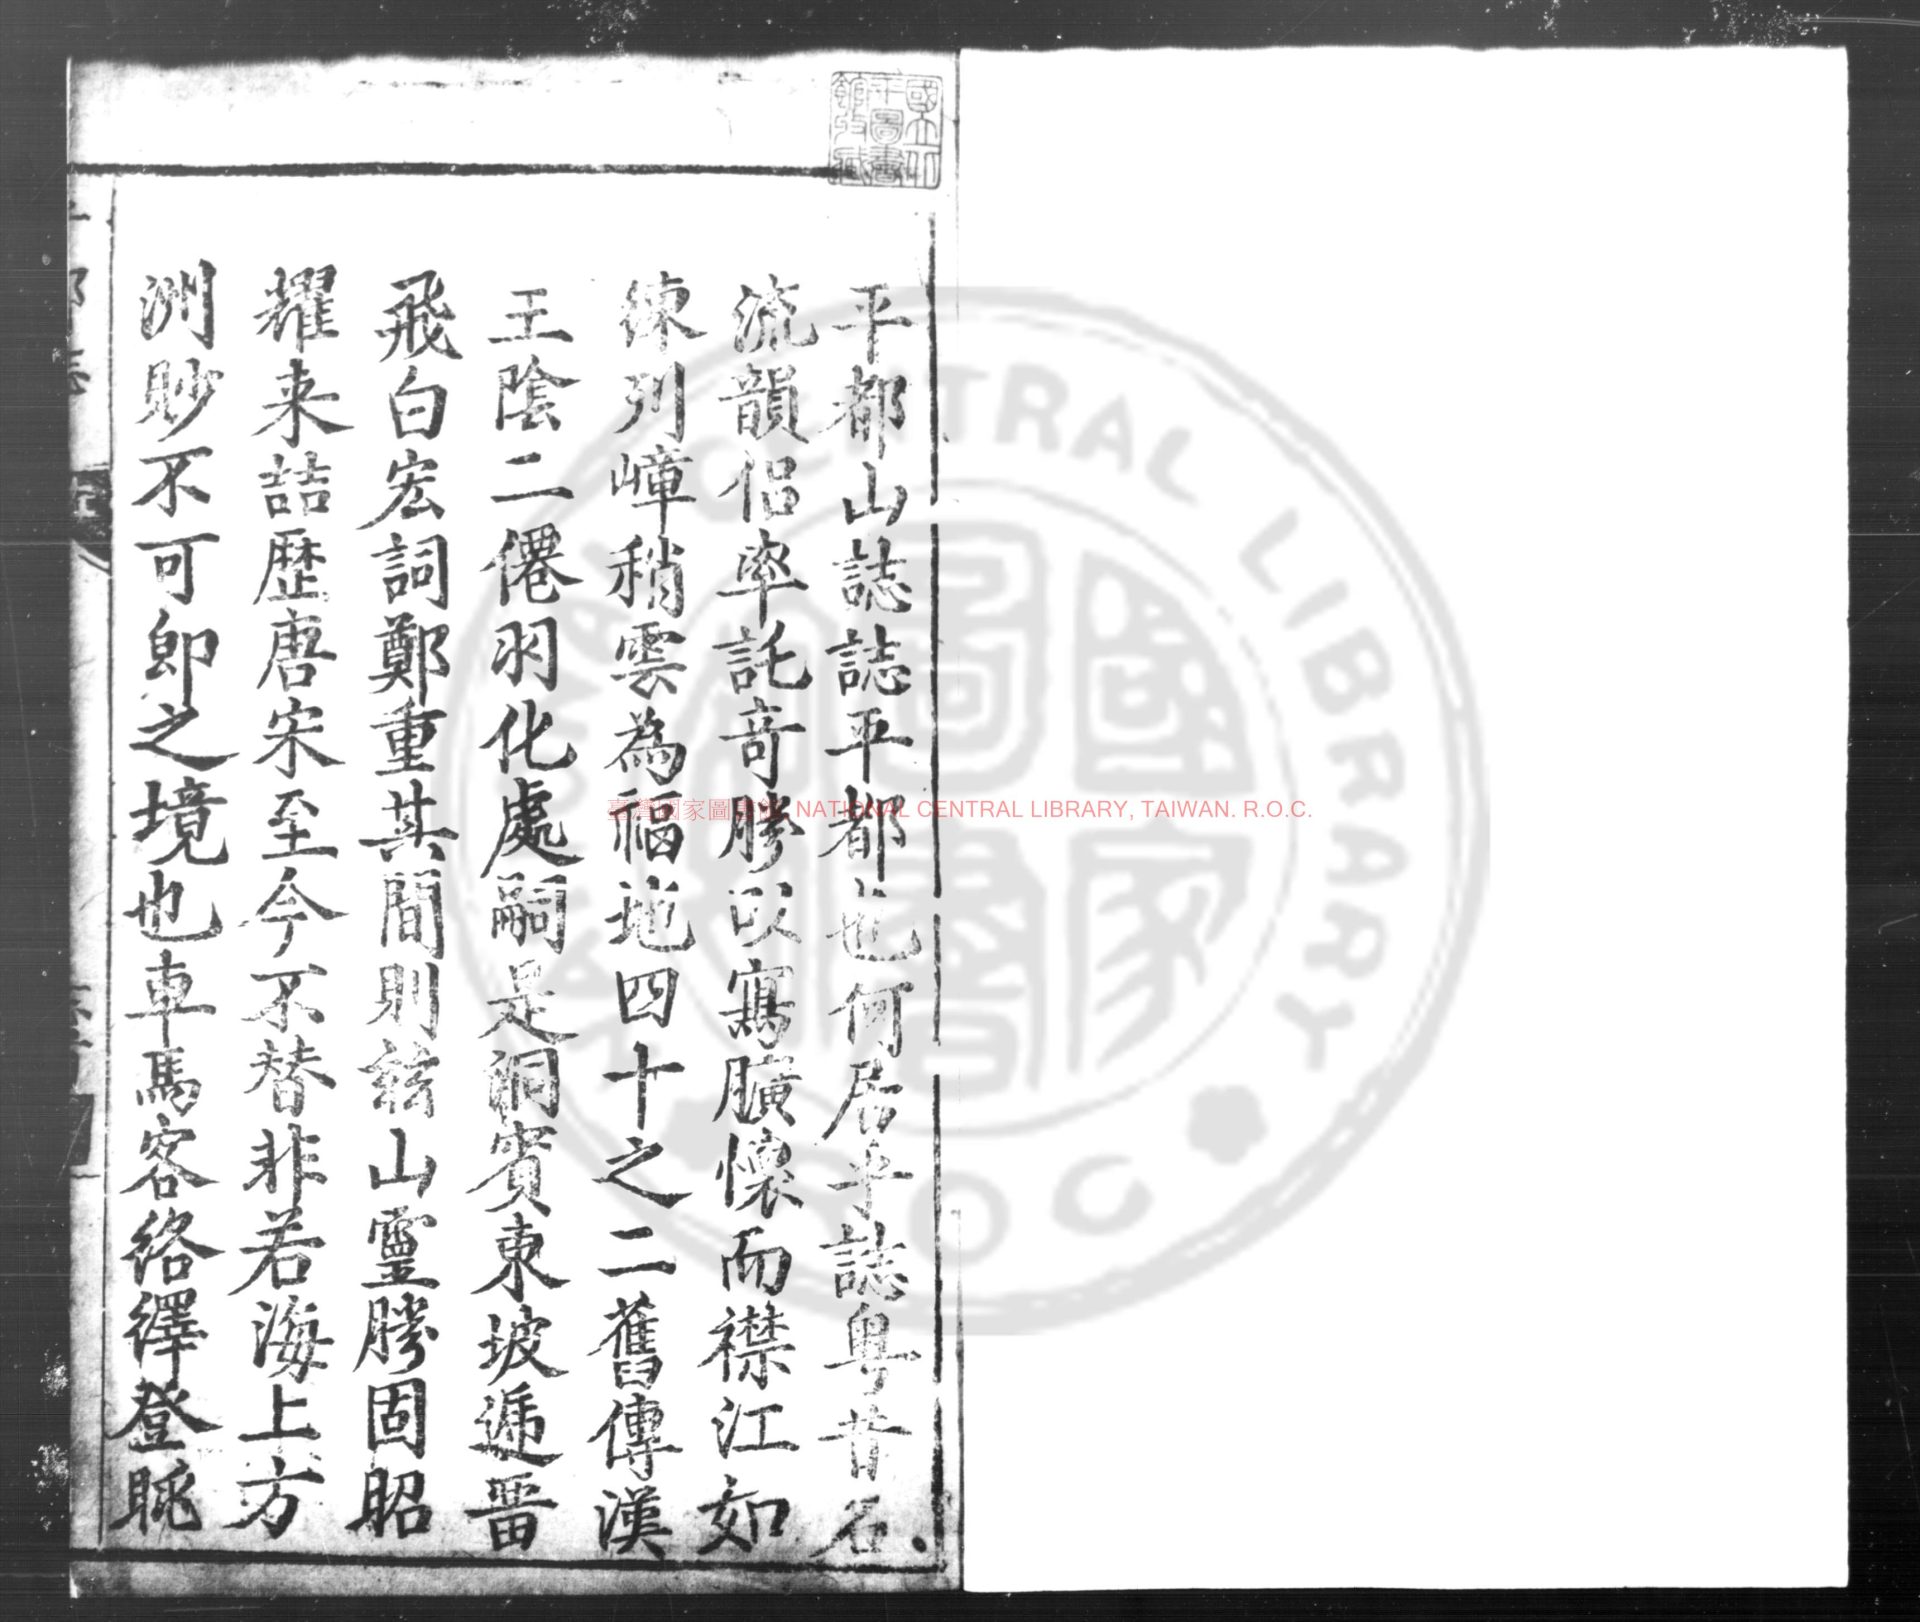 平都山誌誌平都也何居乎誌粤昔名
流韻侶率託奇勝以寫曠懷而襟江如
練列嶂稍雲為福地四十之二舊傳漢
王陰二僊羽化處嗣是洞賓東坡遞畱
飛白宏詞鄭重其間則玆山靈勝固昭
耀来喆歷唐宋至今不替非若海上方
洲眇不可卽之境也車馬客絡繹登眺
臺灣國家圖書館 NATIONAL CENTRAL LIBRARY, TAIWAN. R.O.C.
CENTRAL LIBRARY
ROC
國家圖書
國立中央圖書館收藏